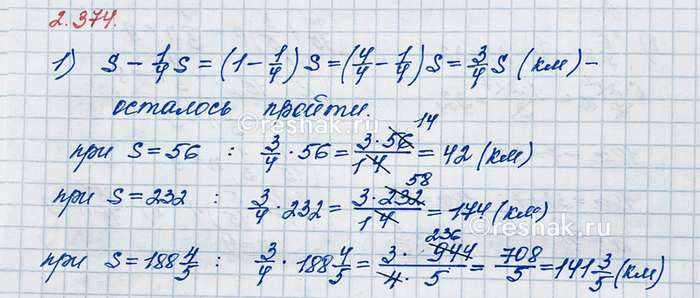 2.374.
1) S - 1/4 S = (1 - 1/4) S = (4/4 - 1/4) S = 3/4 S (км) -
осталось пройти.
© reshak.ru
при S = 56 : 3/4 · 56 = 3·56/4 14 1 = 42 (км)
при S = 232 : 3/4 · 232 = 3·232/4 58 1 = 174 (км)
© reshak.ru
при S = 188 4/5 : 3/4 · 188 4/5 = 3 · 944/4 · 5 236 = 708/5 = 141 3/5 (км)